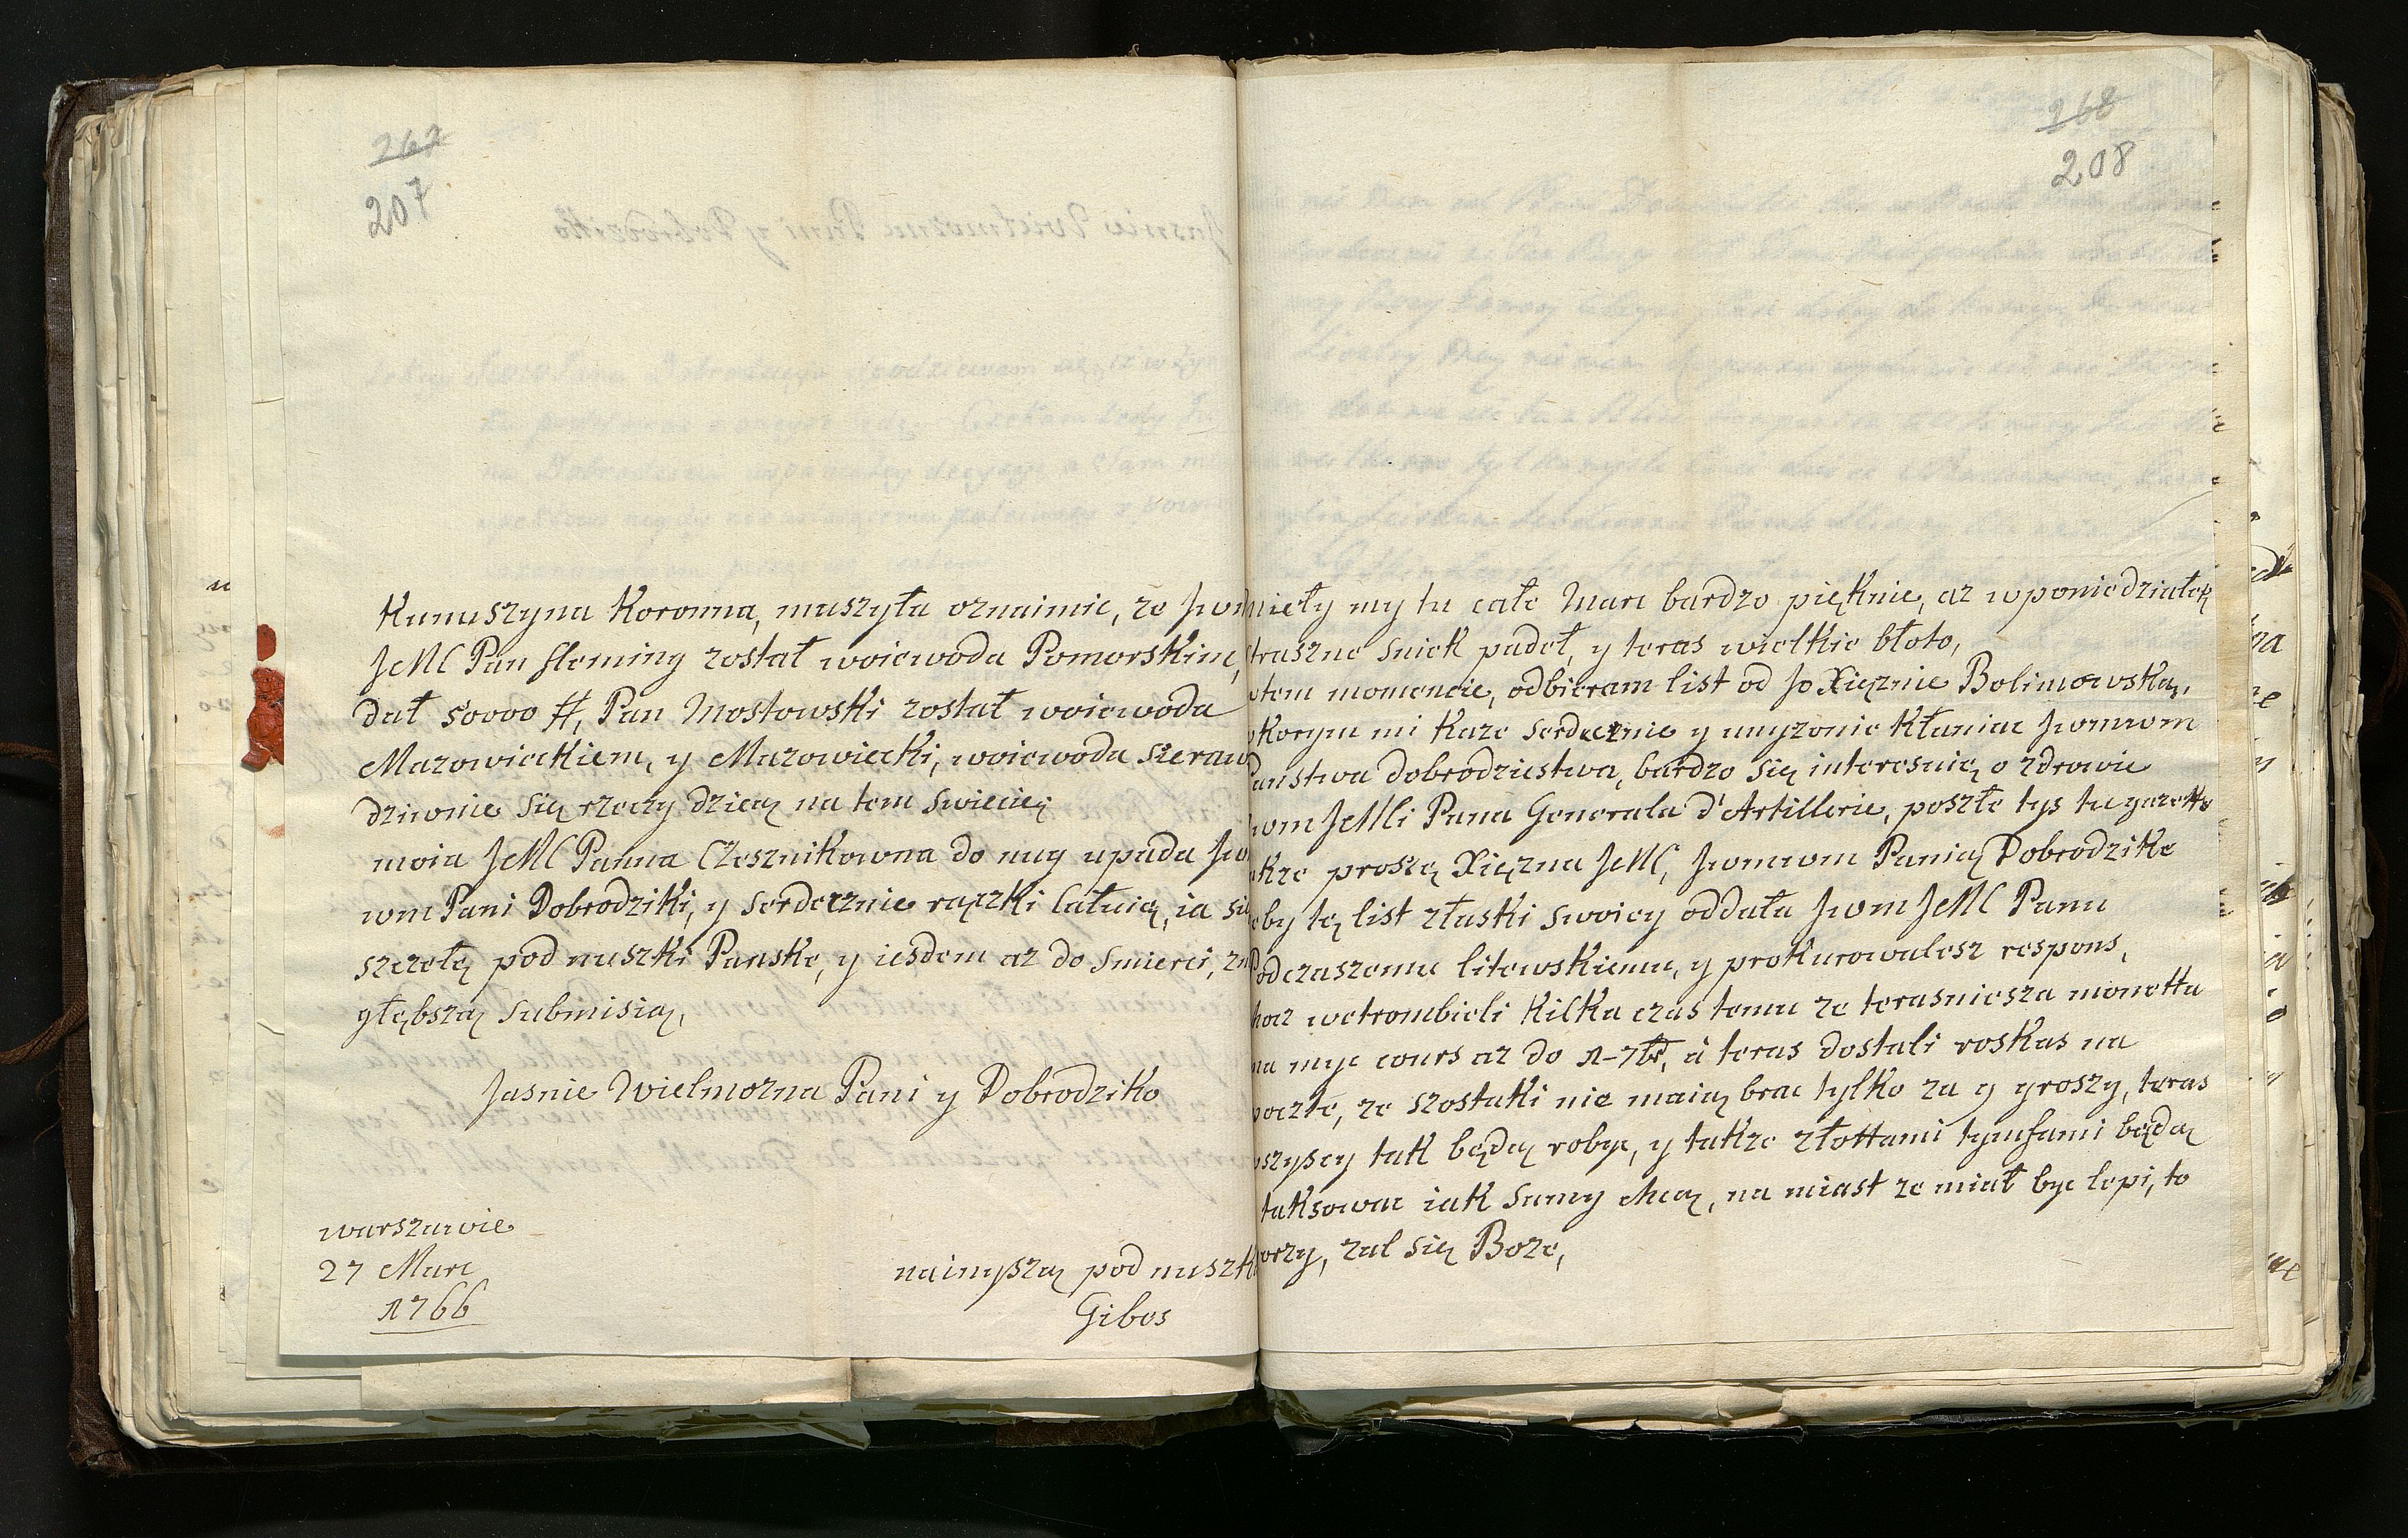 267
207
Kunuszyna Koronna, muszyła oznaimic, ze Jwm
JeMC Pan fleming został woiewoda Pomorskim,
dał 50000 #, Pan Mostowski został woiewoda
Mazowieckiem, y Mazowiecki, woiewoda Sieraw
dziwnie się rzeczy dzieią na tem swieciej
moia JeMC Panna Czesznikowna do nug upada Jw
wm Pani Dobrodziki, y serdecznie rączki całuią, ia się
szczelę pod nuszki Panske, y iesdem az do smierci, zna
głębszą submisią,
Jasnie Wielmozna Pani y Dobrodziko
warszawie
27 Marc
1766
naimyszą pod nuszk
Gibos
268
208
mieły my tu całe Marc bardzo pięknie, az wponiedziałek
straszne sniek padeł, y teras wielkie błoto,
wtem momencie, odbieram list od Jo Xięznie Bolimowską,
wkorym mi Kaze serdecznie y unyzonie Kłaniac Jwmwm
Panstwa dobrodziestwa, bardzo się interesnię o zdrowie
Jwm JeMCi Pana Generala d'Artillerie, poszłe tys tu gazette
akze proszę Xięzna JeMC, Jwmwm Panią Dobrodzike
eby tę list złaski swoiey oddała Jwm JeMC Panu
Podczaszemu litewskiemu, y prokurowalesz respons,
hoz wetrombieli Kilka czas temu ze terasniesza monetta
ma myc cours az do 1-7br, à teras dostali roskas na
poczte, ze szostaki nie maią brac tylko za 9 groszy, teras
wszyscy tak będą robyc, y takze złottami tymfami będą
taksowac iak sumy chcą, na miast ze miał byc lepi, to
orzy, zal się Boze,